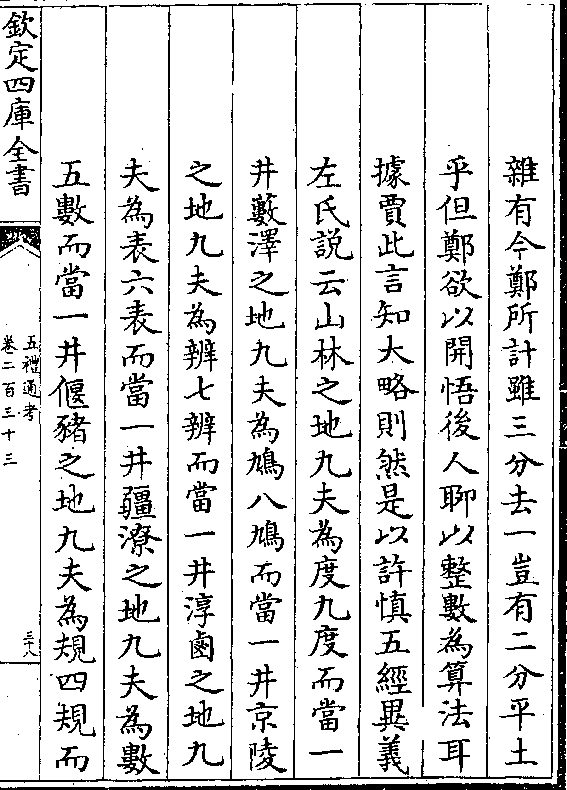 雜有今鄭所計雖三分去一豈有二分平土
乎但鄭欲以開悟後人聊以整數為算法耳
據賈此言知大略則然是以許慎五經異義
左氏説云山林之地九夫為度九度而當一
井藪澤之地九夫為鳩八鳩而當一井京陵
之地九夫為辨七辨而當一井淳鹵之地九
夫為表六表而當一井疆潦之地九夫為數
五數而當一井偃豬之地九夫為規四規而
欽定四庫全書
五禮通考
卷二百三十三
三十八